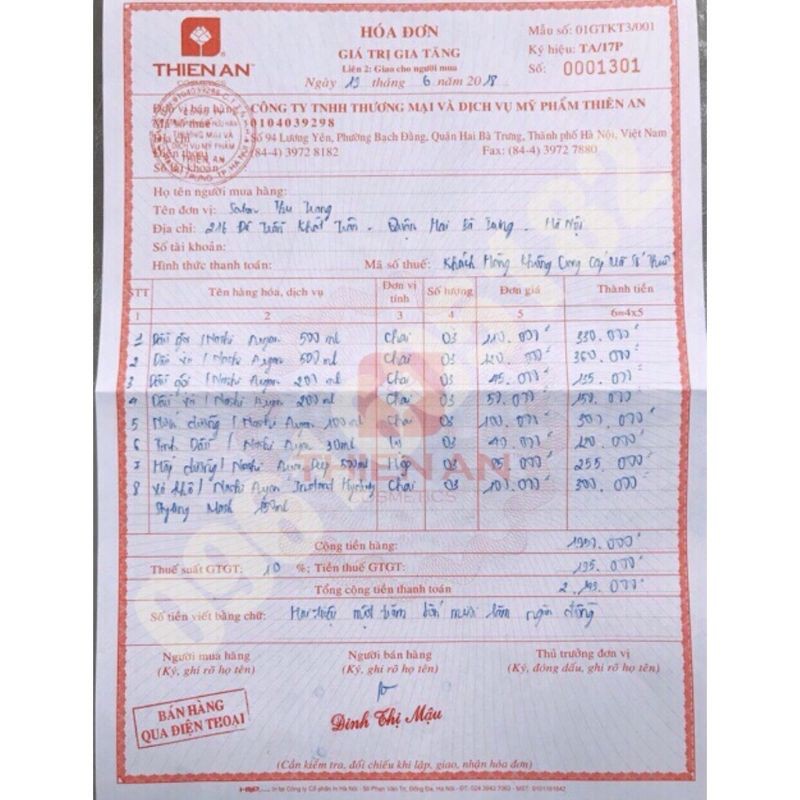 THIEN AN
COSMETICS
HÓA ĐƠN
GIÁ TRỊ GIA TĂNG
Liên 2: Giao cho người mua
Ngày 13 tháng 6 năm 2018
Mẫu số: 01GTKT3/001
Ký hiệu: TA/17P
Số: 0001301
Đơn vị bán hàng CÔNG TY TNHH THƯƠNG MẠI VÀ DỊCH VỤ MỸ PHẨM THIÊN AN
Mã số thuế 0104039298
Địa chỉ Số 94 Lương Yên, Phường Bạch Đằng, Quận Hai Bà Trưng, Thành phố Hà Nội, Việt Nam
Điện thoại (84-4) 3972 8182 Fax: (84-4) 3972 7880
Số tài khoản
Họ tên người mua hàng:
Tên đơn vị: Salon Thu Trang
Địa chỉ: Trần Khát Trân - Quận Hai Bà Trưng - Hà Nội
Số tài khoản:
Hình thức thanh toán: Mã số thuế: Khách hàng không cung cấp mã số thuế
STT Tên hàng hóa, dịch vụ Đơn vị tính Số lượng Đơn giá Thành tiền
1 2 3 4 5 6=4x5
1 Dầu gội / Noshi Argan 500 ml Chai 03 110.000 330.000
2 Dầu xả / Noshi Argan 500 ml Chai 03 120.000 360.000
3 Dầu gội / Noshi Argan 200 ml Chai 03 45.000 135.000
4 Dầu xả / Noshi Argan 200 ml Chai 03 50.000 150.000
5 dưỡng / Noshi Argan 100 ml Chai 03 100.000 300.000
6 Tinh Dầu / Noshi Argan 30ml 03 40.000 120.000
7 Hấp dưỡng / Noshi Argan Deep 500ml Hộp 03 85.000 255.000
8 Xả khô / Noshi Argan Instant Hydrating Chai 03 100.000 300.000
Styling Mask 150ml
THIEN AN
COSMETICS
Cộng tiền hàng: 1950.000
Thuế suất GTGT: 10 %; Tiền thuế GTGT: 195.000
Tổng cộng tiền thanh toán
Số tiền viết bằng chữ: Hai triệu một trăm bốn mươi lăm ngàn đồng
Người mua hàng Người bán hàng Thủ trưởng đơn vị
(Ký, ghi rõ họ tên) (Ký, ghi rõ họ tên) (Ký, đóng dấu, ghi rõ họ tên)
BÁN HÀNG
QUA ĐIỆN THOẠI
Đinh Thị Mậu
(Cần kiểm tra, đối chiếu khi lập, giao, nhận hóa đơn)